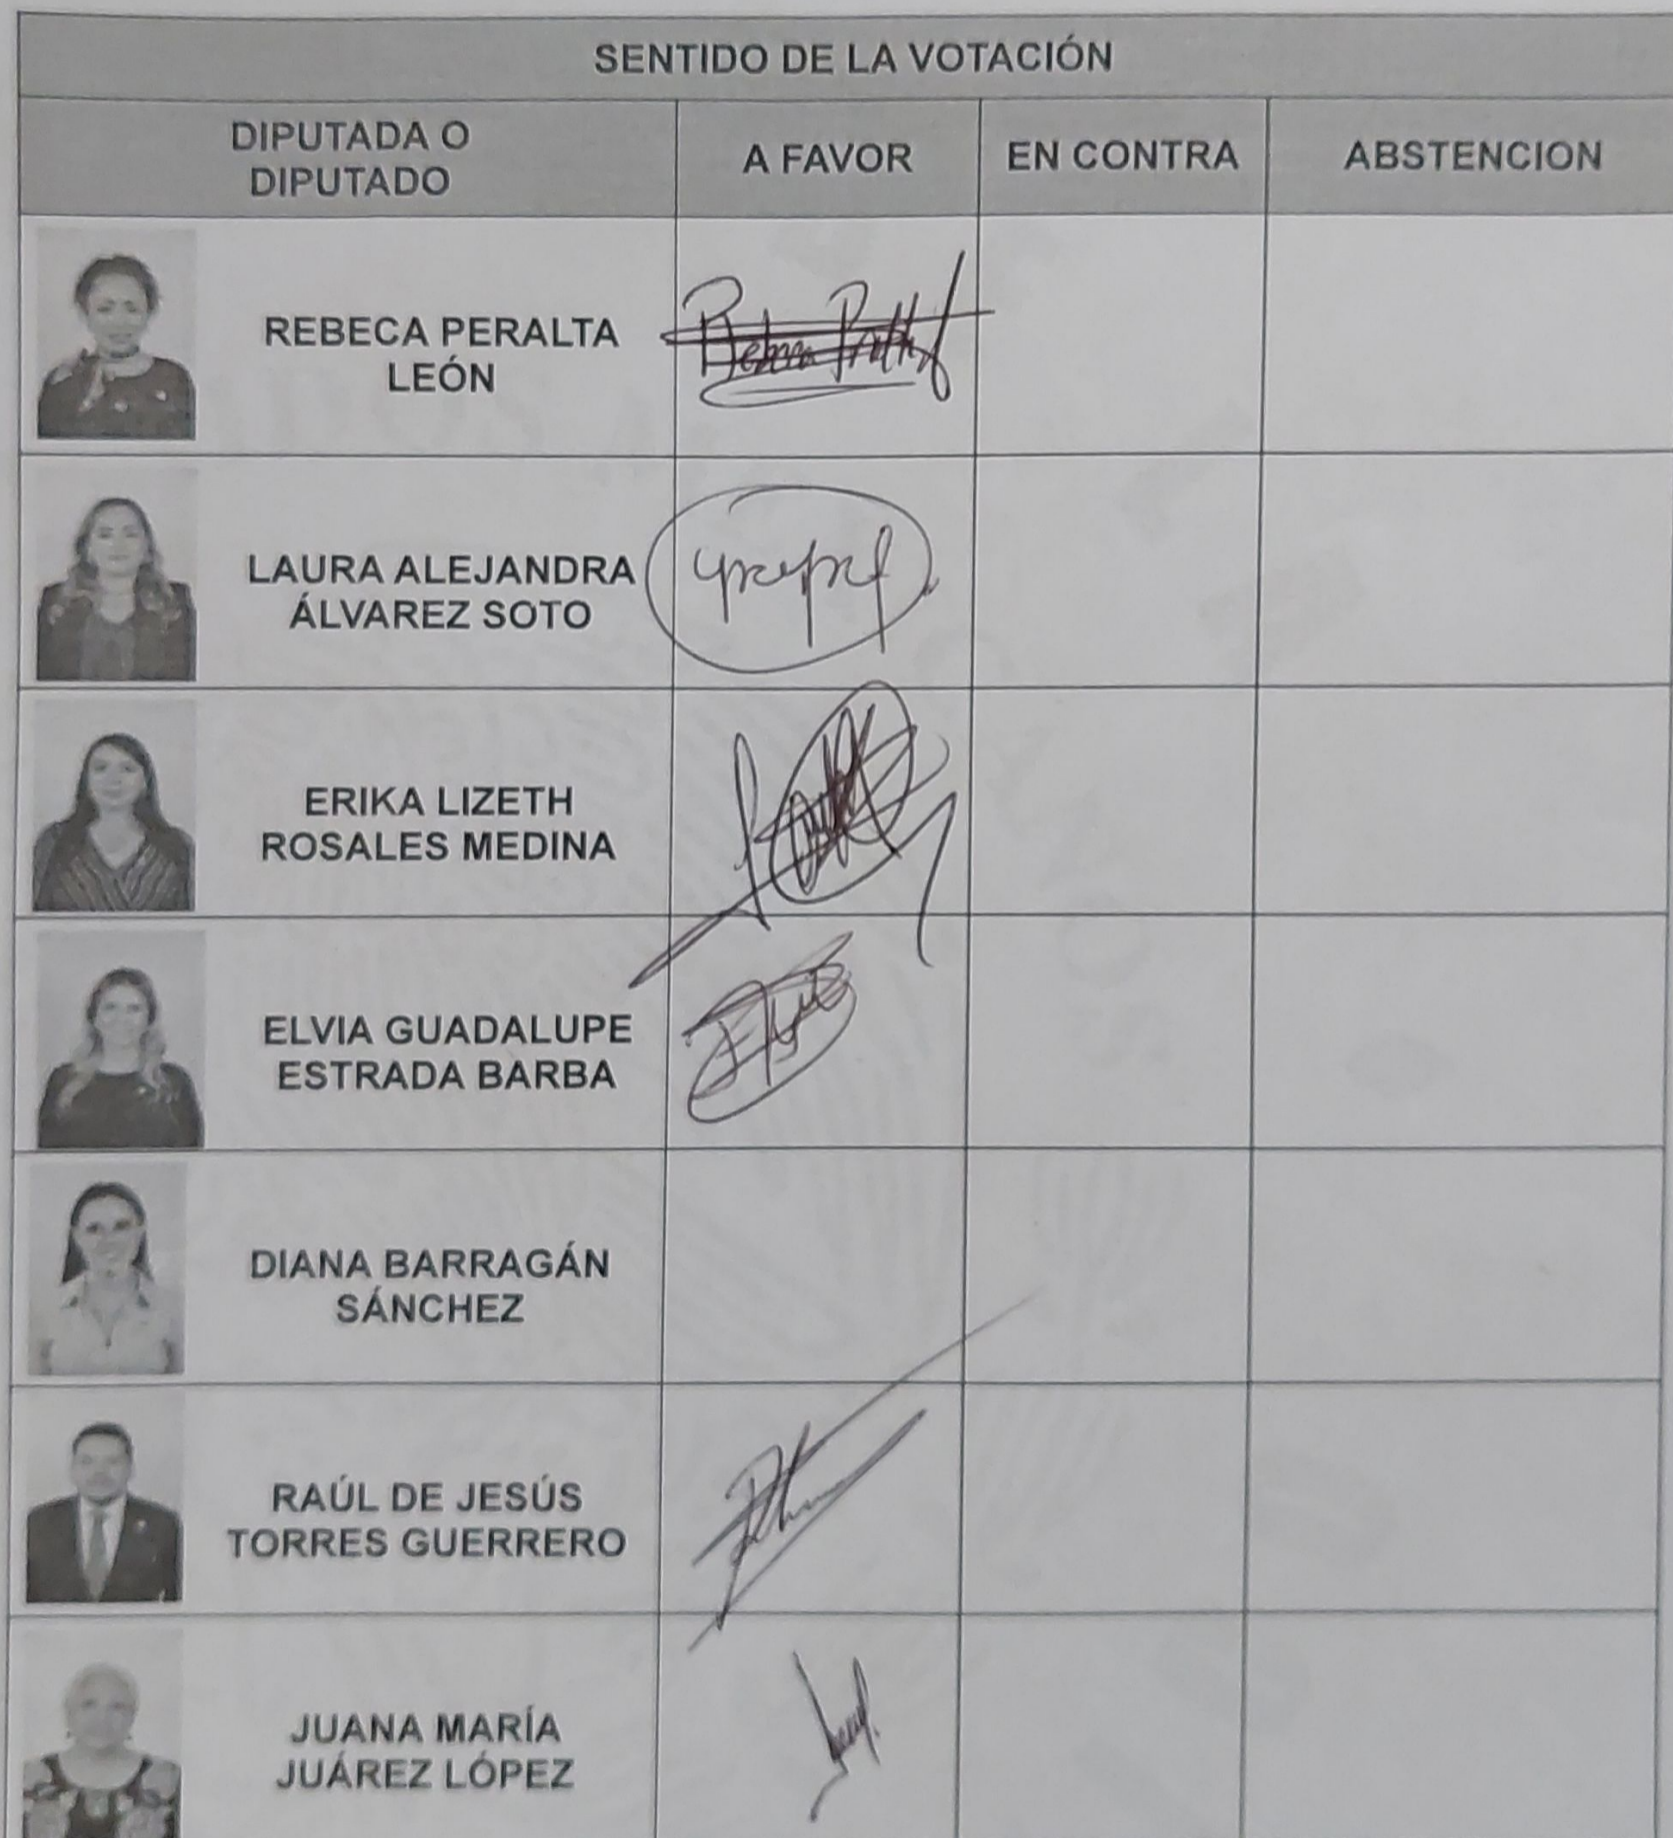 SENTIDO DE LA VOTACIÓN
DIPUTADA O
DIPUTADO
A FAVOR
EN CONTRA
ABSTENCION
REBECA PERALTA
LEÓN
LAURA ALEJANDRA
ÁLVAREZ SOTO
ERIKA LIZETH
ROSALES MEDINA
ELVIA GUADALUPE
ESTRADA BARBA
DIANA BARRAGÁN
SÁNCHEZ
RAÚL DE JESÚS
TORRES GUERRERO
JUANA MARÍA
JUÁREZ LÓPEZ